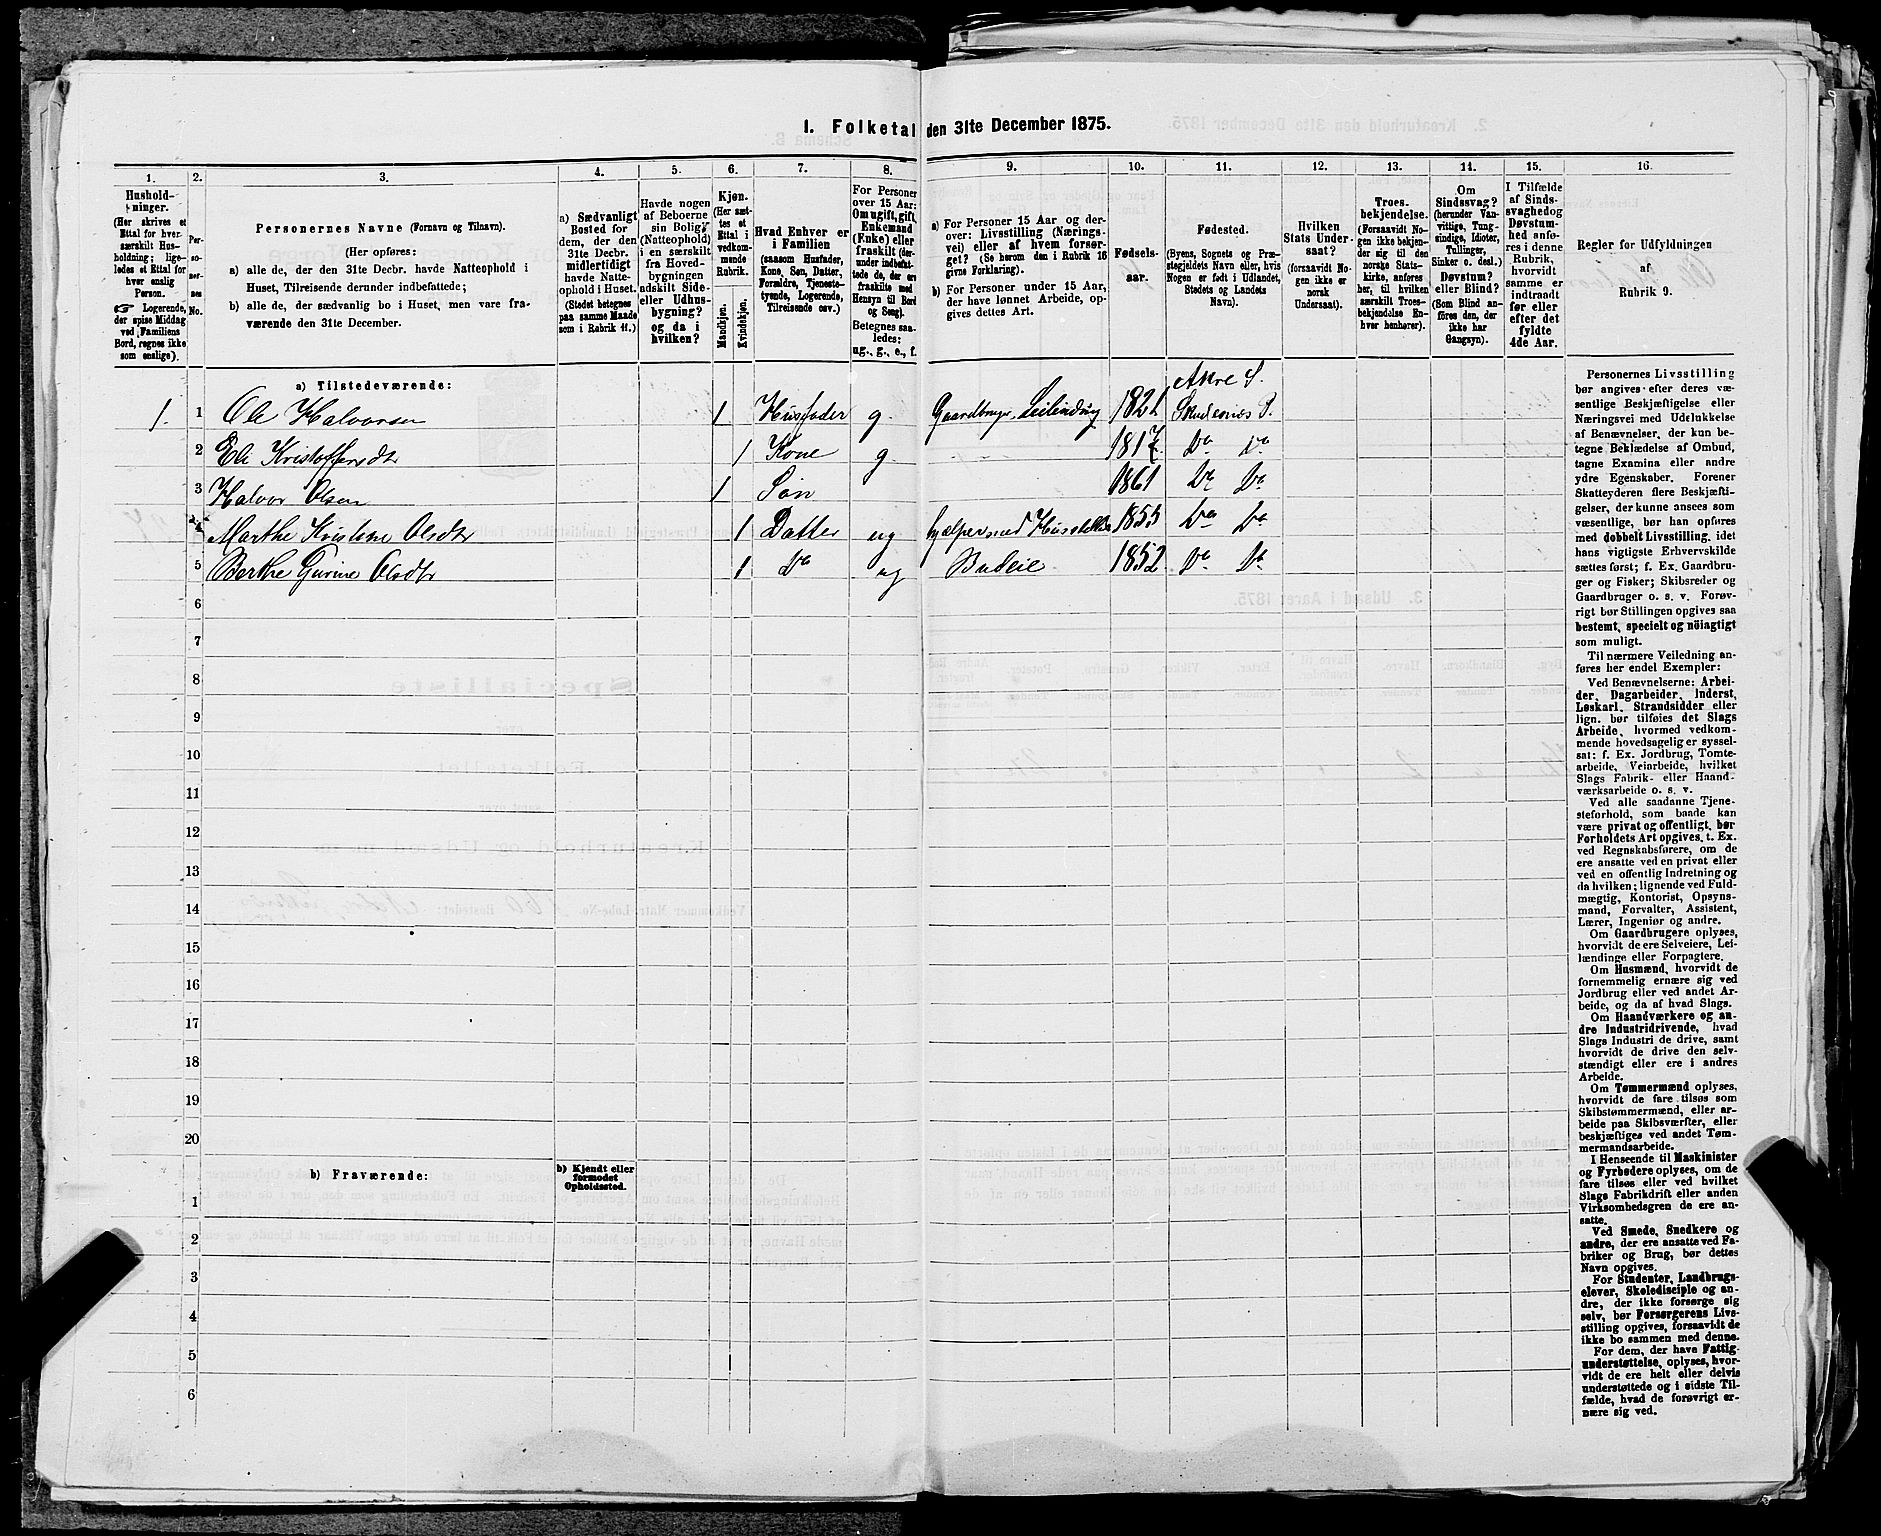 1. Folketal den 31te December 1875.
1.
Hushold-
ninger.
(Her skrives et
Ettal for hver
særskilt Hus-
holdning; lige-
ledes et Ettal for
hver enslig
Person.
Logerende,
der spise Middag
ved Familiens
Bord, regnes ikke
som enslige).
2.
Per-
so-
ner-
nes
No.
3.
Personernes Navne (Fornavn og Tilnavn).
(Her opføres:
a) alle de, der den 31te Decbr. havde Natteophold i
Huset, Tilreisende derunder indbefattede;
b) alle de, der sædvanlig bo i Huset, men vare fra-
værende den 31te December.
4.
a) Sædvanligt
Bosted for
dem, der den
31te Decbr.
midlertidigt
havde Natte-
ophold i Huset.
(Stedet betegnes
paa samme Maade
som i Rubrik 11.)
5.
Havde nogen
af Beboerne
sin Bolig
(Natteophold)
i en særskilt
fra Hoved-
bygningen
adskilt Side-
eller Udhus-
bygning?
og da i
hvilken?
6.
Kjøn.
(Her sæt-
tes et
Ettal i
vedkom-
mende
Rubrik.
Mandkjøn.
Kvindekjøn.
7.
Hvad Enhver er
i Familien
(saasom Husfader,
Kone, Søn, Datter,
Forældre, Tjeneste-
tyende, Logerende,
Tilreisende osv.)
8.
For Personer
over 15 Aar:
Om ugift, gift,
Enkemand
(Enke) eller
fraskilt (der-
under indbefat-
tede de, der ere
fraskilte med
Hensyn til Bord
og Seng).
Betegnes saa-
ledes:
ug., g., e., f.
9.
a) For Personer 15 Aar og der-
over: Livsstilling (Nærings-
vei) eller af hvem forsør-
get? (Se herom den i Rubrik 16
givne Forklaring).
b) For Personer under 15 Aar,
der have lønnet Arbeide, op-
gives dettes Art.
10.
Fødsels-
aar.
11.
Fødested.
(Byens, Sognets og Præ-
stegjeldets Navn eller, hvis
Nogen er født i Udlandet,
Stedets og Landets
Navn).
12.
Hvilken
Stats Under-
saat?
(forsaavidt No-
gen ikke er
norsk
Undersaat).
13.
Troes-
bekjendelse.
(Forsaavidt No-
gen ikke bekjen-
der sig til den
norske Stats-
kirke, anføres
her, til hvilken
særskilt Troes-
bekjendelse En-
hver henhører).
14.
Om
Sindssvag?
(herunder Van-
vittige, Tung-
sindige, Idioter,
Tullinger,
Sinker o. desl.)
Døvstum?
eller Blind?
(Som Blind an-
føres den, der
ikke har
Gangsyn).
15.
I Tilfælde
af Sinds-
svaghed og
Døvstum-
hed anfø-
res i denne
Rubrik,
hvorvidt
samme er
indtraadt
før eller
efter det
fyldte
4de Aar.
16.
Regler for Udfyldningen
af
Rubrik 9.
a) Tilstedeværende:
Akre S.
1. 1 Ole Halvorsen 1 Husfader g. Gaardbruger, Leilending 1821 Skudesnæs P.
2 Eli Kristoffersdtr 1 Kone g. 1817 Do Do
3 Halvor Olsen 1 Søn 1861 Do Do
4 Marthe Kristine Olsdtr 1 Datter ug hjælper med Husstellet 1855 Do Do
5 Berthe Gurine Olsdtr 1 Do ug Budeie 1852 Do Do
6
7
8
9
10
11
12
13
14
15
16
17
18
19
20
b) Fraværende:
b) Kjendt eller
formodet
Opholdssted.
1
2
3
4
5
6
Personernes Livsstilling
bør angives efter deres væ-
sentlige Beskjæftigelse eller
Næringsvei med Udelukkelse
af Benævnelser, der kun be-
tegne Beklædelse af Ombud,
tagne Examina eller andre
ydre Egenskaber. Forener
Skatteyderen flere Beskjæfti-
gelser, der kunne ansees som
væsentlige, bør han opføres
med dobbelt Livsstilling, idet
hans vigtigste Erhvervskilde
sættes først; f. Ex. Gaardbru-
ger og Fisker; Skibsreder og
Gaardbruger o. s. v. Forøv-
rigt bør Stillingen opgives saa
bestemt, specielt og nöiagtigt
som muligt.
Til nærmere Veiledning an-
føres her endel Exempler:
Ved Benævnelserne: Arbei-
der, Dagarbeider, Inderst,
Løskarl, Strandsidder eller
lign. bør tilføies det Slags
Arbeide, hvormed vedkom-
mende hovedsagelig er syssel-
sat: f. Ex. Jordbrug, Tomte-
arbeide, Veiarbeide, hvilket
Slags Fabrik- eller Haand-
værksarbeide o. s. v.
Ved alle saadanne Tjene-
steforhold, som baade kan
være privat og offentligt, bør
Forholdets Art opgives, t. Ex.
ved Regnskabsførere, om de
ere ansatte ved en privat eller
ved en offentlig Indretning og
da hvilken; lignende ved Fuld-
mægtig, Kontorist, Opsyns-
mand, Forvalter, Assistent,
Lærer, Ingeniør og andre.
Om Gaardbrugere oplyses,
hvorvidt de ere Selveiere, Lei-
lændinge eller Forpagtere.
Om Husmænd, hvorvidt de
fornemmelig ernære sig ved
Jordbrug eller ved andet Ar-
beide, og da af hvad Slags.
Om Haandværkere og an-
dre Industridrivende, hvad
Slags Industri de drive, samt
hvorvidt de drive den selv-
stændigt eller ere i andres
Arbeide.
Om Tømmermænd oplyses,
hvorvidt de fare tilsøs som
Skibstømmermænd, eller ar-
beide paa Skibsværfter, eller
beskjæftiges ved andet Tøm-
mermandsarbeide.
I Henseende til Maskinister
og Fyrbødere oplyses, om de
fare tilsøs eller ved hvilket
Slags Fabrikdrift eller anden
Virksomhedsgren de ere an-
satte.
Ved Smede, Snedkere og
andre, der ere ansatte ved Fa-
briker og Brug, bør dettes
Navn opgives.
For Studenter, Landbrugs-
elever, Skoledisciple og an-
dre, der ikke forsørge sig
selv, bør Forsørgerens Livs-
stilling opgives, forsaavidt de
ikke bo sammen med denne.
For dem, der have Fattig-
understøttelse, oplyses, hvor-
vidt de ere helt eller delvis
understøttede og i sidste Til-
fælde, hvad de forøvrigt er-
nære sig ved.